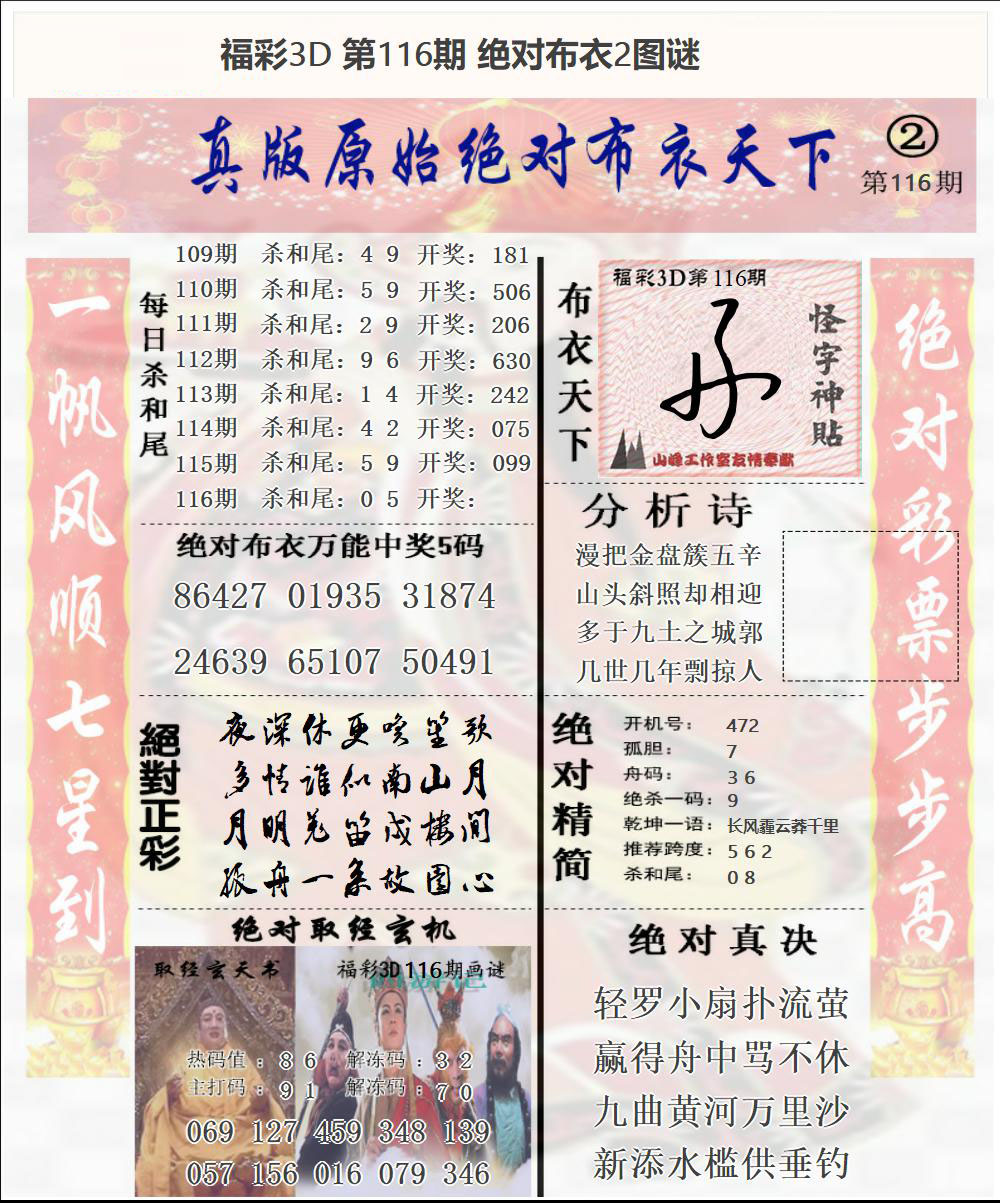 福彩3D 第116期 绝对布衣2图谜
真版原始绝对布衣天下
②
第116期
一帆风顺七星到
每日杀和尾
109期 杀和尾：4 9 开奖：181
110期 杀和尾：5 9 开奖：506
111期 杀和尾：2 9 开奖：206
112期 杀和尾：9 6 开奖：630
113期 杀和尾：1 4 开奖：242
114期 杀和尾：4 2 开奖：075
115期 杀和尾：5 9 开奖：099
116期 杀和尾：0 5 开奖：
绝对布衣万能中奖5码
86427 01935 31874
24639 65107 50491
絕對正彩
夜深休更唤笙歌
多情谁似南山月
月明羌笛戍楼间
孤舟一系故园心
绝对取经玄机
取经玄天书
福彩3D116期画谜
热码值：8 6 解冻码：3 2
主打码：9 1 解冻码：7 0
069 127 459 348 139
057 156 016 079 346
布衣天下
福彩3D第116期
怪字神貼
山峰工作室友情奉献
分析诗
漫把金盘簇五辛
山头斜照却相迎
多于九土之城郭
几世几年剽掠人
绝对精简
开机号： 472
孤胆： 7
舟码： 3 6
绝杀一码： 9
乾坤一语： 长风霾云莽千里
推荐跨度： 5 6 2
杀和尾： 0 8
绝对真决
轻罗小扇扑流萤
赢得舟中骂不休
九曲黄河万里沙
新添水槛供垂钓
绝对彩票步步高